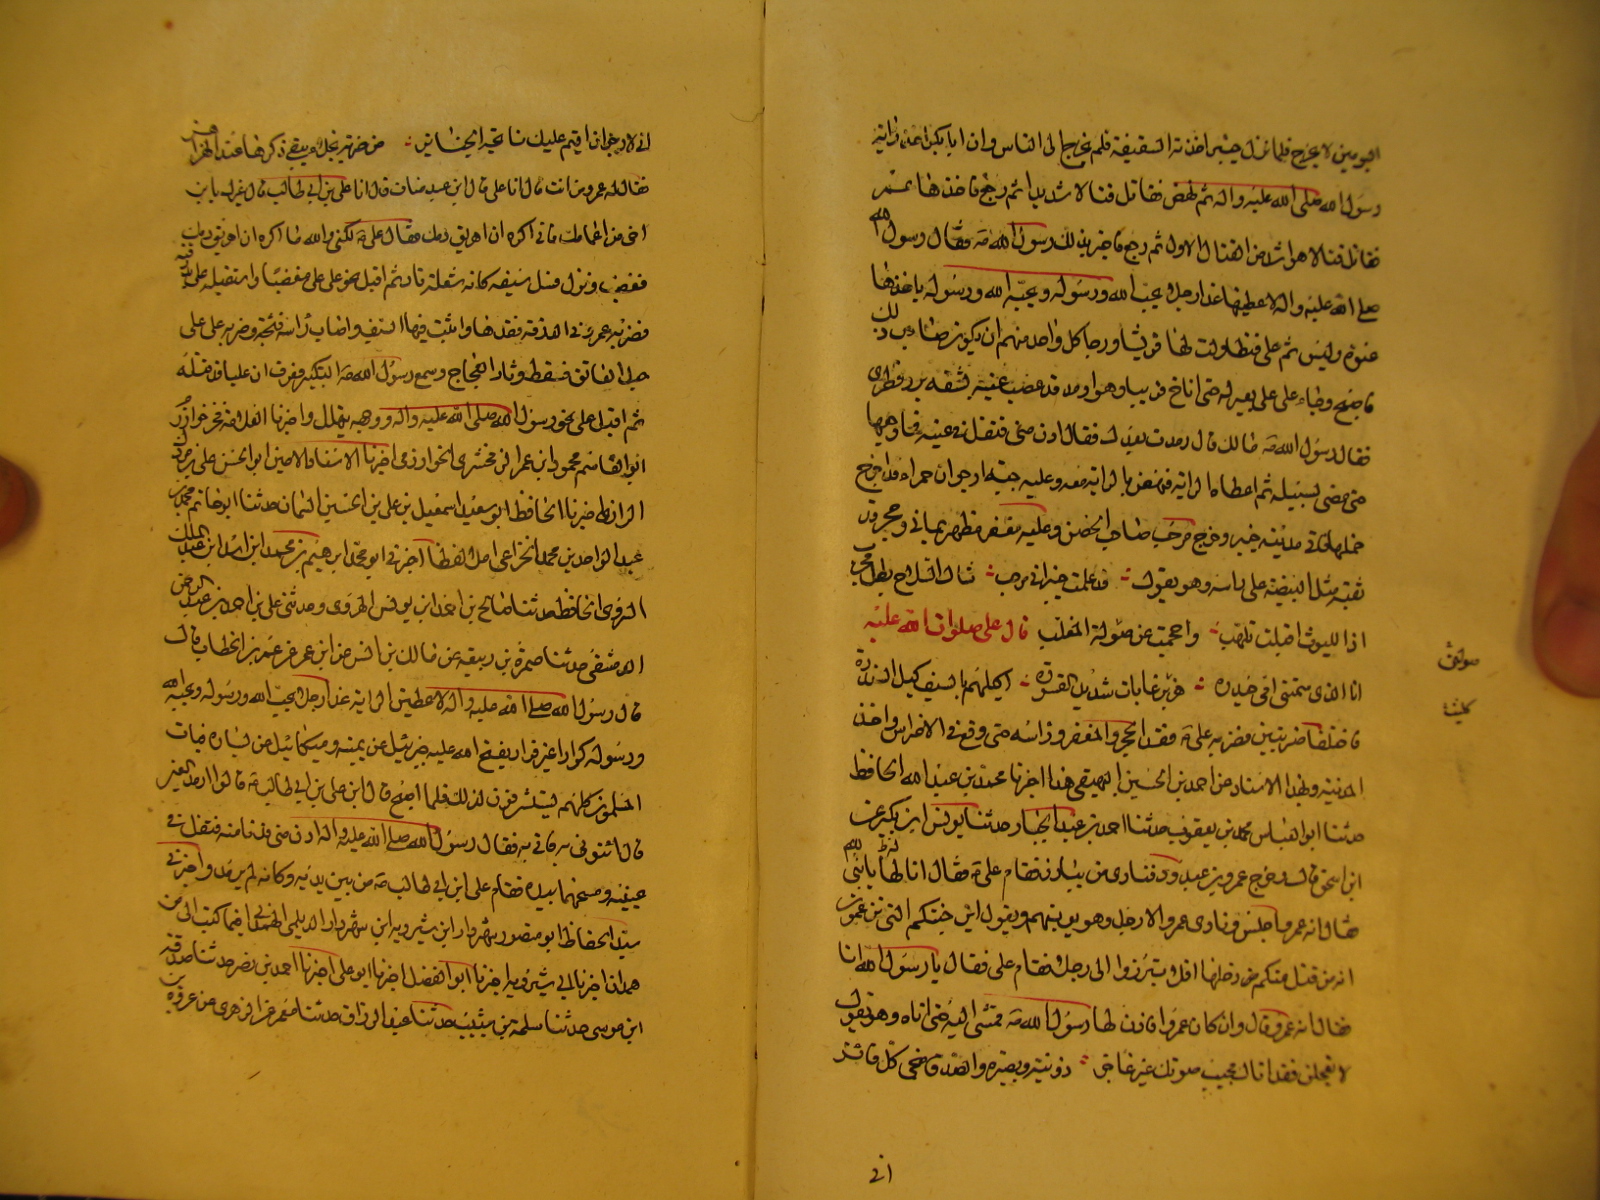 اليومين لا يخرج فلما نزل خيبر اخذته الشقيقة فلم يخرج الى الناس وان ابا بكر اخذ راية
رسول الله صلى الله عليه واله ثم نهض فقاتل قتالا شديدا ثم رجع فاخذها عمر
فقاتل قتالا هو اشد من القتال الاول ثم رجع فاخبر بذلك رسول الله صه فقال رسول الله
صلى الله عليه واله لاعطينها غدا رجلا يحب الله ورسوله ويحبه الله ورسوله ياخذها
عنوة وليس ثم على فتطاولت لها قريش ورجا كل واحد منهم ان يكون صاحب ذلك
فاصبح وجاء على على بعير له حتى اناخ قريبا وهو ارمد قد عصب عينيه بشقة برد قطرى
فقال رسول الله صه مالك قال رمدت بعدك فقال ادن منى فتفل فى عينيه فما وجعها
حتى مضى لسبيله ثم اعطاه الراية فنهض بالراية معه وعليه جبة ارجوان حمراء قد اخرج
خملها فاتى مدينة خيبر وخرج مرحب صاحب الحصن وعليه مغفر مظهر يمانى وحجر قد
ثقبه مثل البيضة على راسه وهو يقول قد علمت خيبر انى مرحب شاك السلاح بطل مجرب
اذا الليوث اقبلت تلهب واحجمت عن صولة المغلب قال على صلوات الله عليه
انا الذى سمتنى امى حيدره هزبر غابات شديد القسوره اكيلهم بالسيف كيل السندره
صولتى
كليث
فاختلفا ضربتين فضربه على ع فقد الحجر والمغفر وراسه حتى وقع فى الاضراس واخذ
المدينة وبهذا الاسناد عن احمد بن الحسين البيهقى هذا اخبرنا محمد بن عبد الله الحافظ
حدثنا ابو العباس محمد بن يعقوب حدثنا احمد بن عبد الجبار حدثنا يونس ابن بكير عن
ابن اسحق قال خرج عمرو بن عبد ود فنادى من يبارز فقام على ع فقال انا لها يا نبى الله
فقال انه عمرو اجلس ونادى عمرو الا رجل وهو يونبهم ويقول اين جنتكم التى تزعمون
انه من قتل منكم دخلها افلا يبرز الى رجل فقام على فقال يا رسول الله انا
فقال انه عمرو قال وان كان عمرو فاذن لها رسول الله صه فمشى اليه حتى اتاه وهو يقول
لا تعجلن فقد اتاك مجيب صوتك غير عاجز ذو نية وبصيرة والصدق منجى كل فائز
انى
انى لارجو ان اقيم عليك نائحة الجنائز من ضربة نجلاء يبقى ذكرها عند الهزاهز
فقال له عمرو من انت قال انا على قال ابن عبد مناف قال انا على بن ابى طالب قال غيرك يا بن
اخى من اعمامك فانى اكره ان اهريق دمك فقال على ع لكنى والله ما اكره ان اهريق دمك
فغضب ونزل فسل سيفه كانه شعلة نار ثم اقبل نحو على مغضبا واستقبله على بدرقته
فضربه عمرو فى الدرقة فقدها واثبت فيها السيف واصاب راسه فشجه وضربه على على
حبل العاتق فسقط وثار العجاج وسمع رسول الله صه التكبير فعرف ان عليا قد قتله
ثم اقبل على نحو رسول الله صلى الله عليه واله ووجهه يتهلل واخبرنا العلامة فخر خوارزم
ابو القاسم محمود ابن عمر الزمخشرى الخوارزمى اخبرنا الاستاد الامين ابو الحسن على بن مردك
الرازى اخبرنا الحافظ ابو سعيد اسمعيل بن على بن الحسين السمان حدثنا ابو حاتم محمد بن
عبد الواحد بن محمد الخزاعى اخبرنى ابو محمد ابن ابن عبد الملك
الهروى الحافظ حدثنا صالح بن احمد ابن يونس الهروى وحدثنى على بن احمد بن عبد الرحمن
الدمشقى حدثنا ضمرة بن ربيعة عن مالك بن انس عن ابن عمر عن عمر بن الخطاب قال
قال رسول الله صلى الله عليه واله لاعطين الراية غدا رجلا يحب الله ورسوله ويحبه الله
ورسوله كرارا غير فرار يفتح الله عليه جبرئيل عن يمينه وميكائيل عن يساره فبات
المسلمون كلهم ليستشرفون لذلك فلما اصبح قال اين على بن ابى طالب ع قالوا ارمد العين
قال ائتونى به فاتى به فقال رسول الله صلى الله عليه واله ادن منى فدنا منه فتفل فى
عينيه ومسحهما بيده فقام على ابن ابى طالب ع من بين يديه وكانه لم يرمد واخبرنى
سيد الحفاظ ابو منصور شهردار ابن شيرويه ابن شهردار الديلمى الهمدانى فيما كتب الى من
همدان اخبرنا ابى شيرويه اخبرنا ابو الفضل اخبرنا ابو على اخبرنا احمد بن نصر حدثنا صدقة بن
ابن موسى حدثنا سلمة بن شبيب حدثنا عبد الرزاق حدثنا معمر عن الزهرى عن عروة